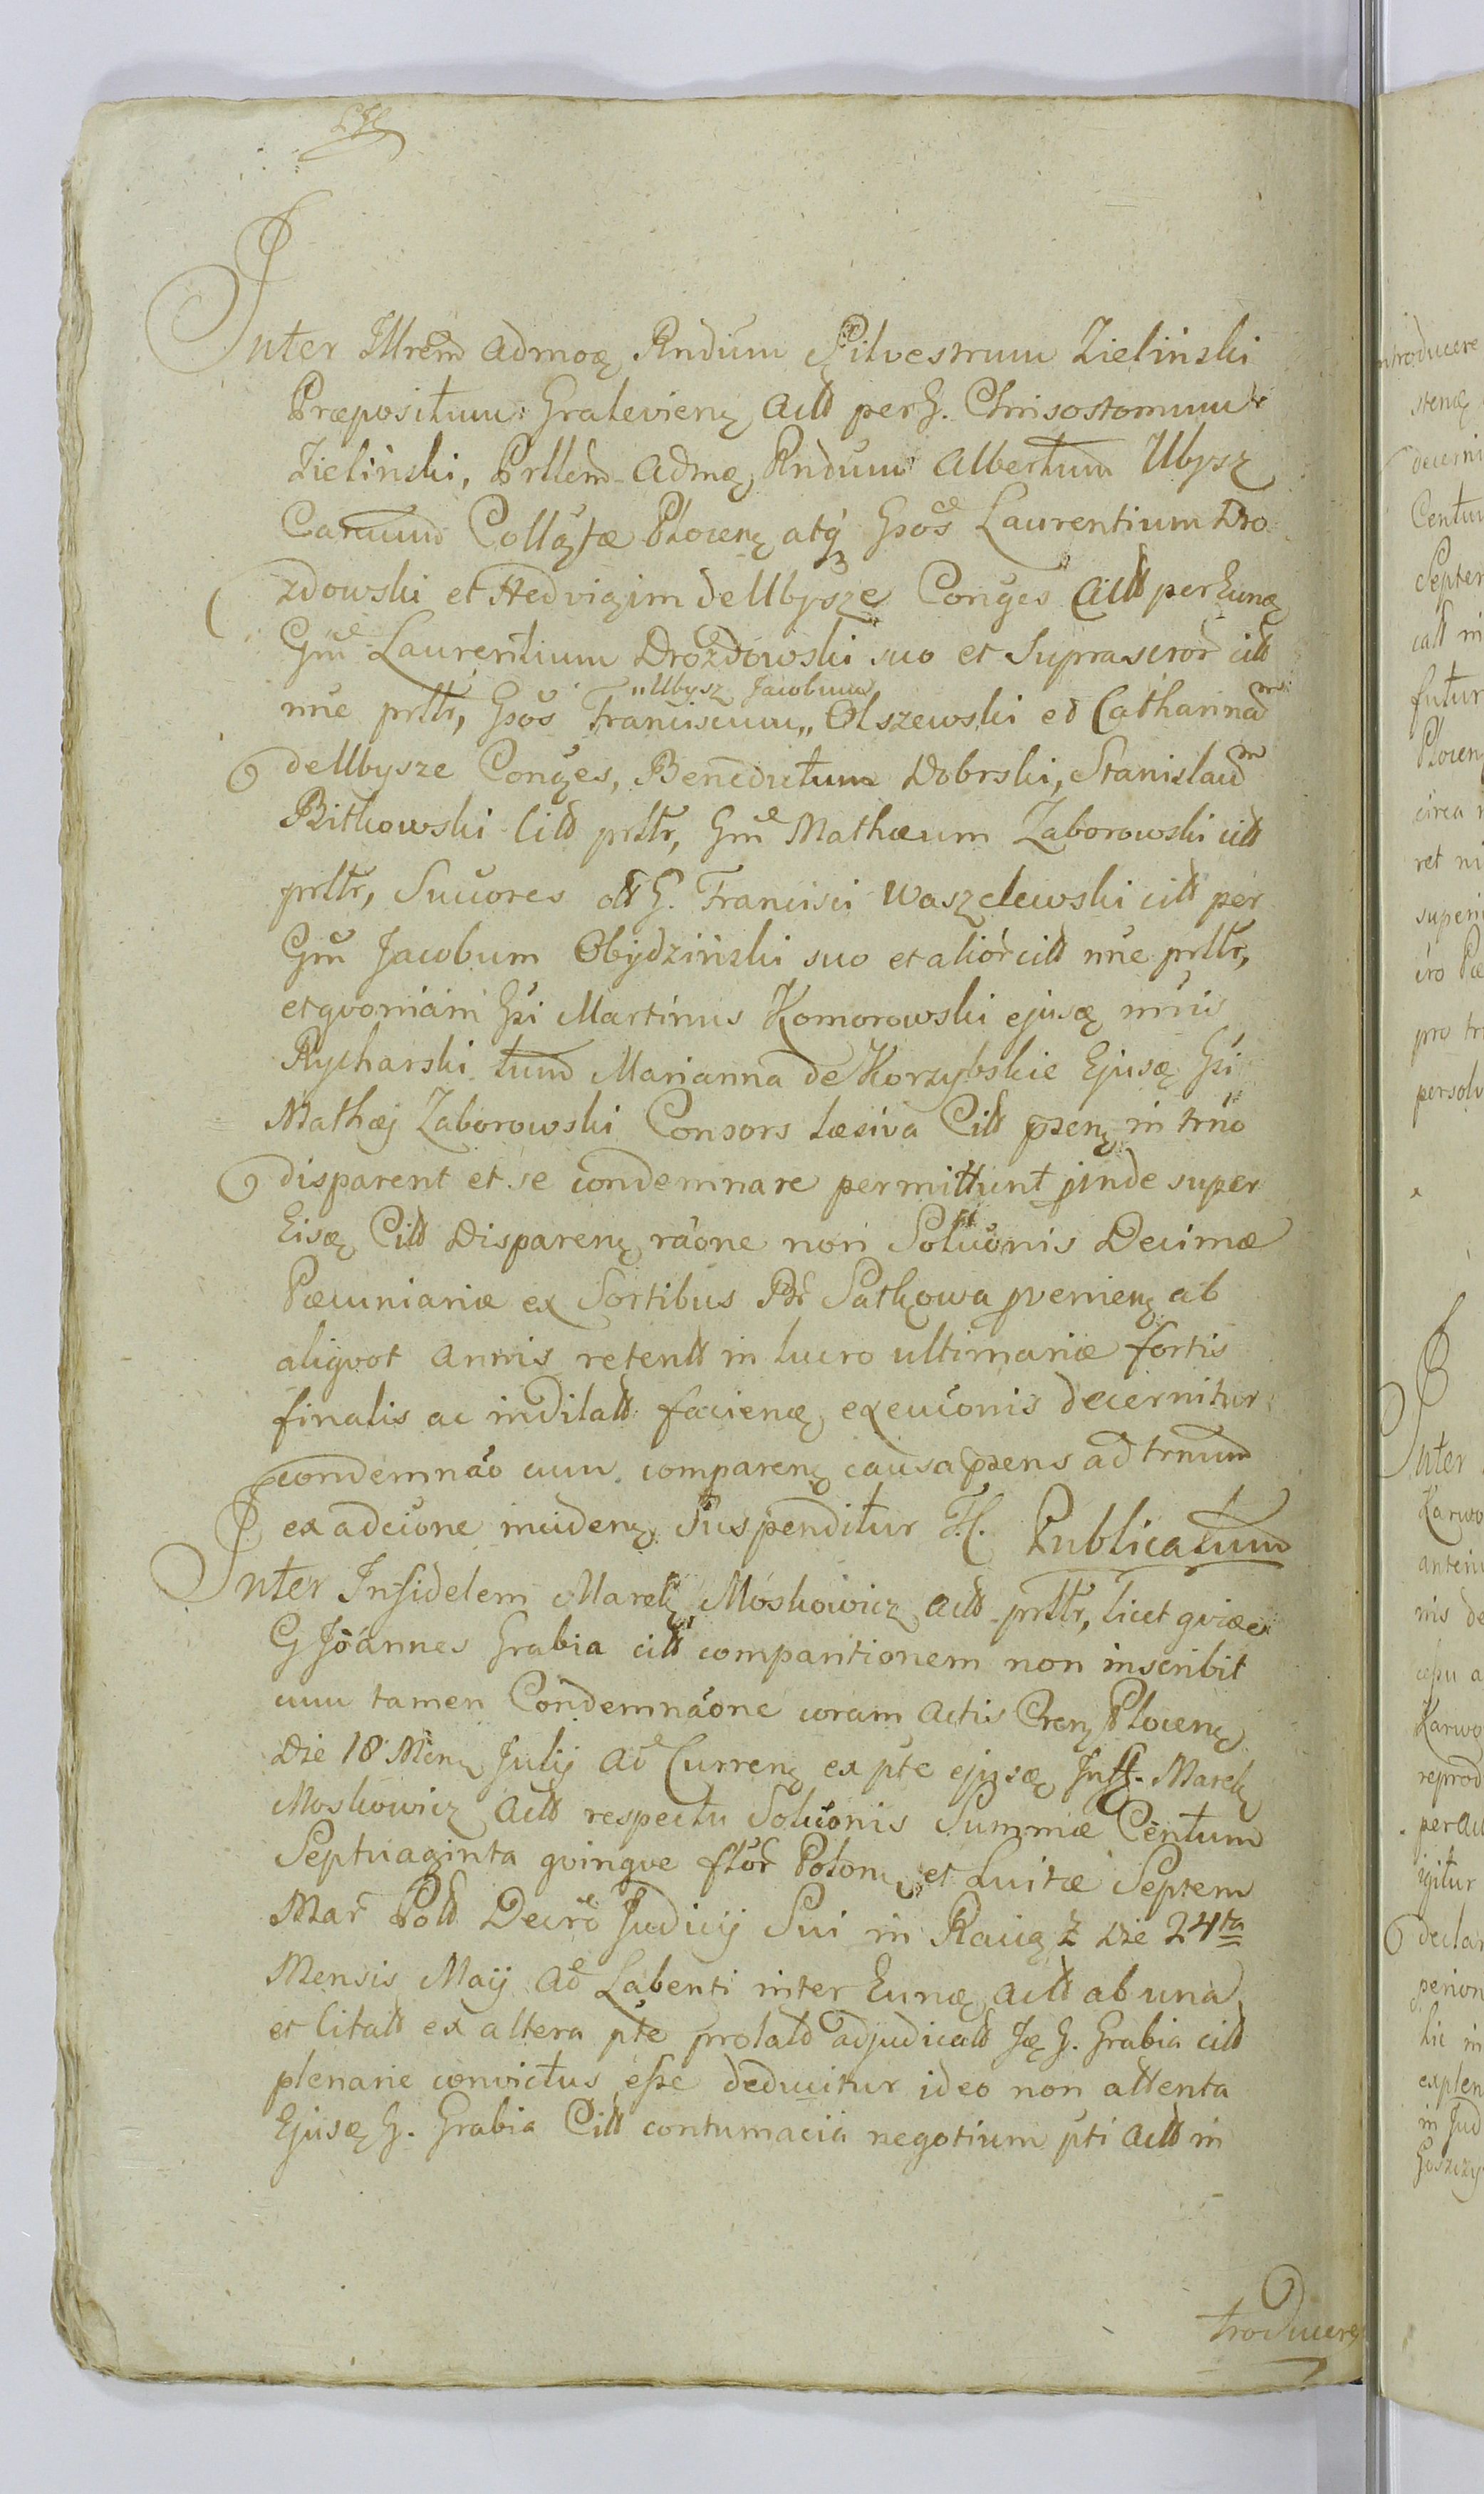 Inter Illrem admoꝫ Rndum Silvestrum Zielinski
Præpositum Gralevienꝫ actt per G. Chrisostomum
Zielinski, Prllem Admꝫ Rndum Albertum Ubysz
Canum Collgtæ Plocenꝫ atq Gsos Laurentium Dro
zdowski et Hedvigim de Ubysze Conges Citt per Eunꝫ
Gm Laurentium Drozdowski suo et Suprascror citt
nne prttr, Gsos Franciscum „Ubysz Jacobum„ Olszewski et Catharinam
de Ubysze Conges, Benedictum Dobrski, Stanislaum
Bitkowski Citt prttr, Gm Mathæum Zaborowski citt
prttr, Succores olt G. Francisci Waszelewski citt per
Gm Jacobum Obydzinski suo et alior citt nne prttr,
et qvoniam Gsi Martinus Komorowski ejusꝫ nnis
Rycharski tum Marianna de Korzybskie Ejusꝫ Gsi
Mathæj Zaborowski Consors læsiva Citt psenꝫ in trno
disparent et se condemnare permittunt proinde super
Eisꝫ Citt Disparenꝫ raone non Solucionis Decimæ
Pæcuniariæ ex Sortibus Br Satkowa pvenienꝫ ab
aliqvot annis retentt in lucro ultimariæ fortis
finalis ac indilatt faciendꝫ execucionis decernitur
condemnao cum comparenꝫ causa psens ad trnum
ex adcione incidenꝫ Suspenditur H. Publicatum
Inter Infidelem Marek Moskowicz actt prttr, licet qviæ
G Joannes Grabia citt comparitionem non inscribit
cum tamen Condemnaone coram Actis Crenꝫ Plocenꝫ
Die 18 Menꝫ Julij Ad Currenꝫ ex pte ejusꝫ Inf. Marek
Moskowicz actt respectu Solucionis Summæ Centum
Septuaginta qvinqve flor Polonꝫ et Luitæ Septem
Mar Polt Decro Judicij Sui in Raciąz Die 24ta
Mensis Maij Ad Labenti inter Eunꝫ actt ab una
et Citatt ex altera pte prolatt adjudicatt Jꝫ G. Grabia citt
plenarie convictus esse deducitur ideo non attenta
Ejusꝫ G. Grabia Citt contumacia negotium pti actt in
troducere
ntroducere
decerni
Centu
Septem
futur
Plocen
circa
ret ni
superi
pro tr
persolv
Inter
Karwo
nis de
Karwo
reprod
per act
igitur
declar
hic in
explen
in Jud